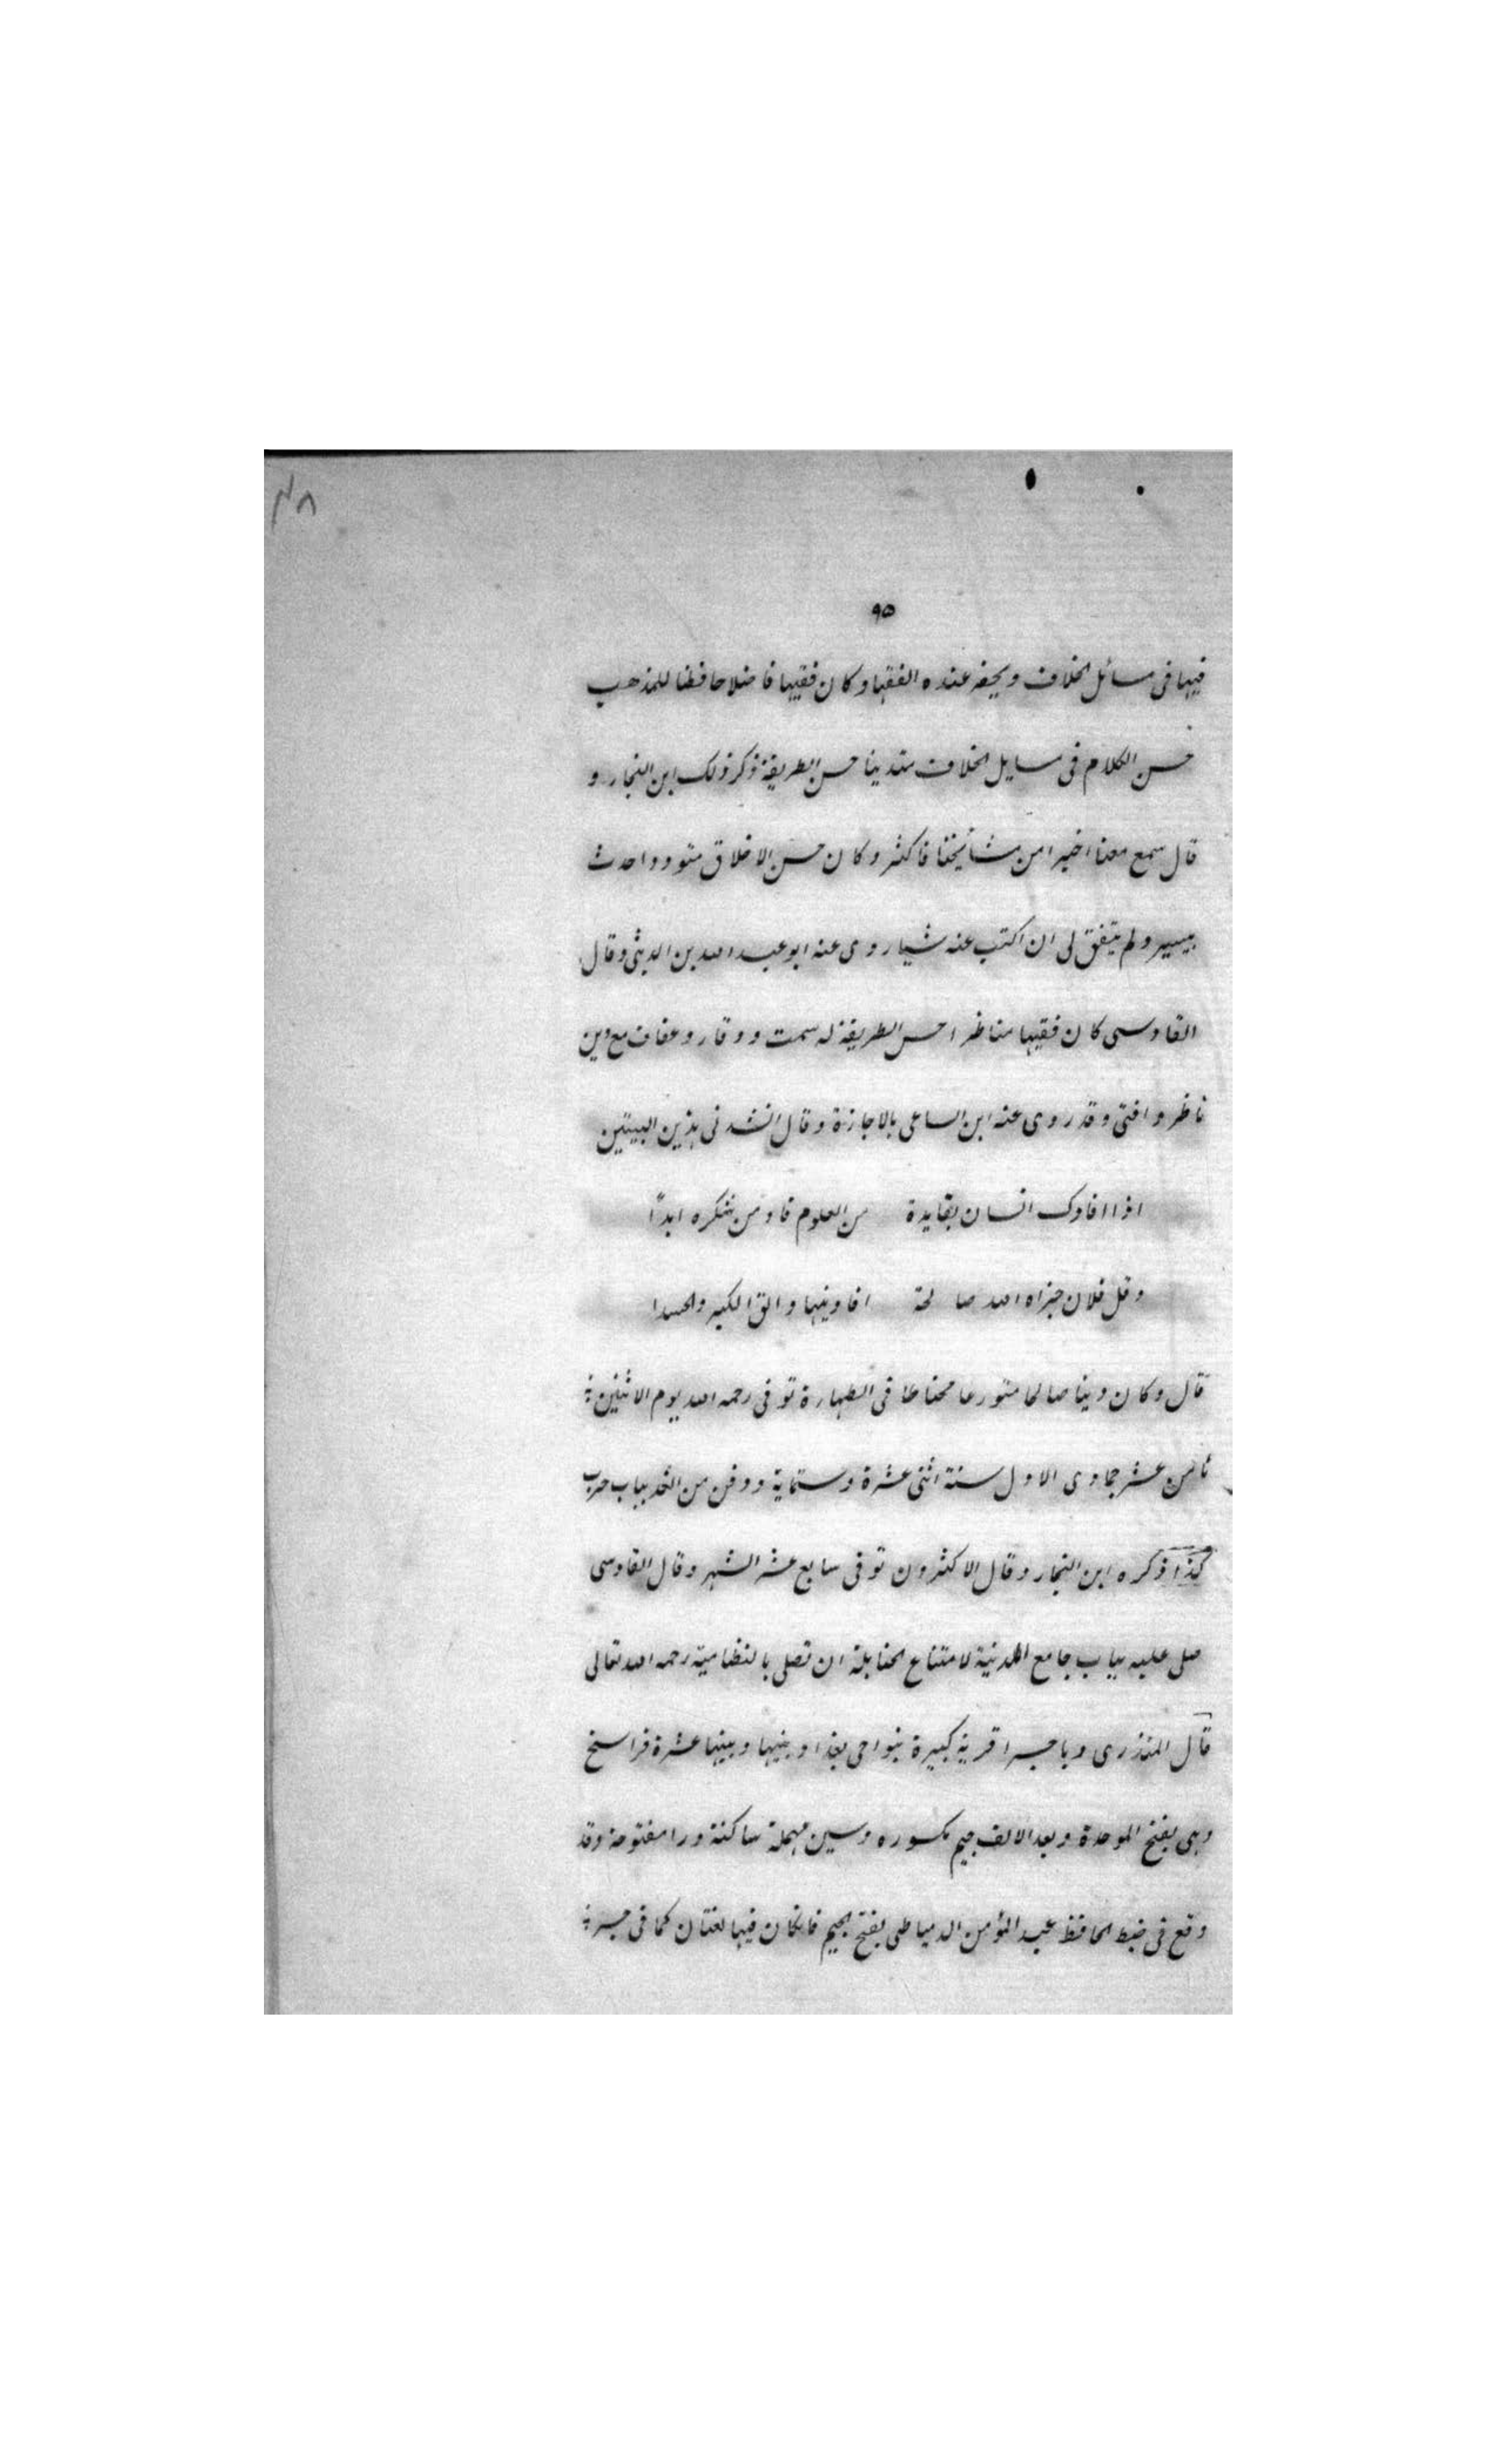 ٤٨
٩٥
فيها فى مسائل الخلاف ويحضر عنده الفقها وكان فقيها فاضلا حافظا للمذهب
حسن الكلام فى مسايل الخلاف متدينا حسن الطريقة ذكر ذلك ابن النجار و
قال سمع معنا اخيرا من مشأيخنا فاكثر وكان حسن الاخلاق متوددا حدث
بيسير ولم يتفق لى ان اكتب عنه شيا روى عنه ابو عبد الله بن الدبثى وقال
القادسى كان فقيها مناظرا حسن الطريقة له سمت ووقار وعفاف مع دين
ناظر وافتى وقد روى عنه ابن الساعى بالاجازة وقال انشدنى هذين البيتين
اذا افادك انسان بفايدة من العلوم فادمن شكره ابداً
وقل فلان جزاه الله صالحة افادنيها والق الكبر والحسدا
قال وكان دينا صالحا متورعا محتاطا فى الطهارة توفى رحمه الله يوم الاثنين
ثامن عشر جمادى الاول سنة اثنى عشرة وستماية ودفن من الغد بباب حرب
كذا ذكره ابن النجار وقال الاكثرون توفى سابع عشر الشهر وقال القادسى
صلى عليه بباب جامع المدنية لامتناع الحنابلة ان تصلى بالنظامية رحمه الله تعالى
قال المنذرى وباجسرا قرية كبيرة بنواحى بغداد بينها وبينها عشرة فراسخ
وهى بفتح الموحدة وبعد الالف جيم مكسوره وسين مهملة ساكنة ورا مفتوحة وقد
وقع فى ضبط الحافظ عبد المؤمن الدمياطى بفتح الجيم فانكان فيها لغتان كما فى جسر